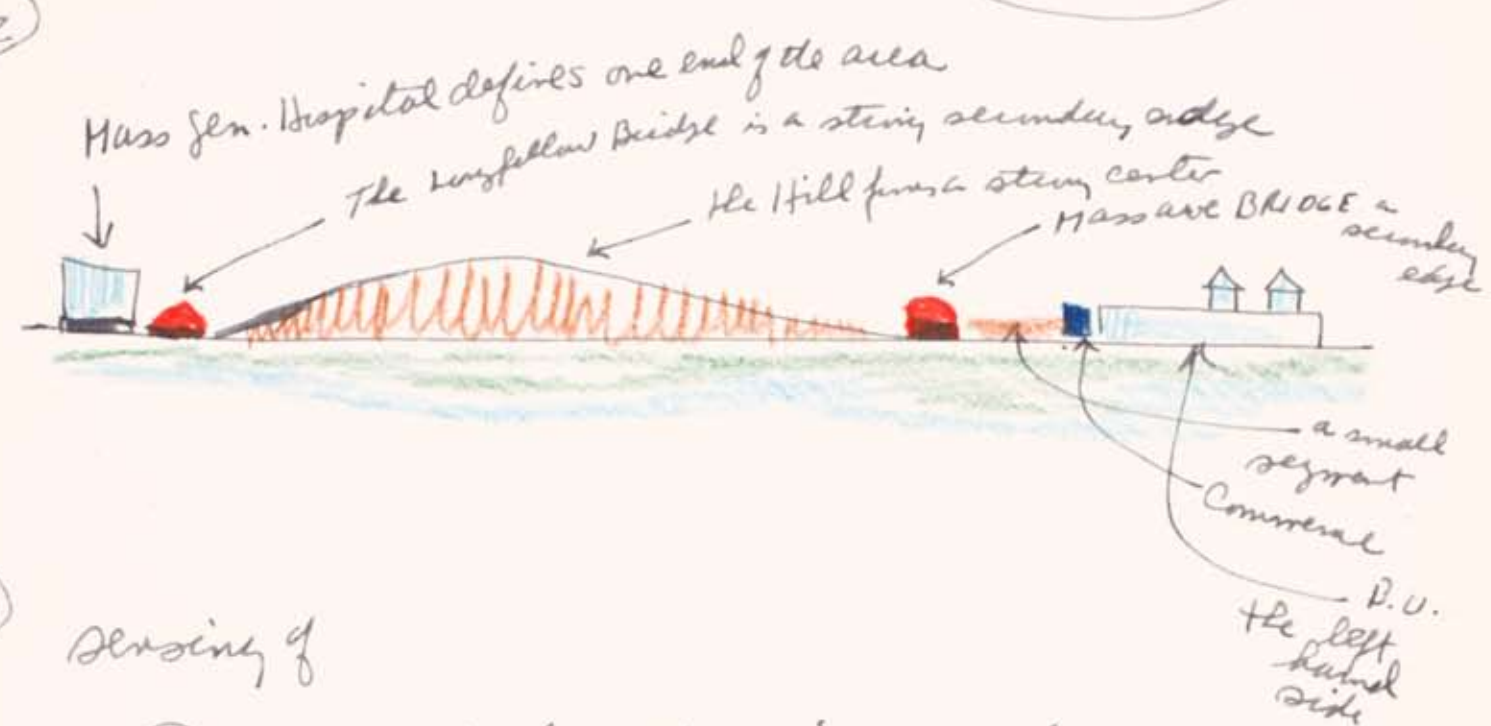 Mass Gen. Hospital defines one end of the area
The Longfellow Bridge is a strong secondary edge
the Hill forms a strong center
MASS AVE BRIDGE a
secondary
edge
a small
segment
Commercial
B.U.
the left
hand
side
sensing of